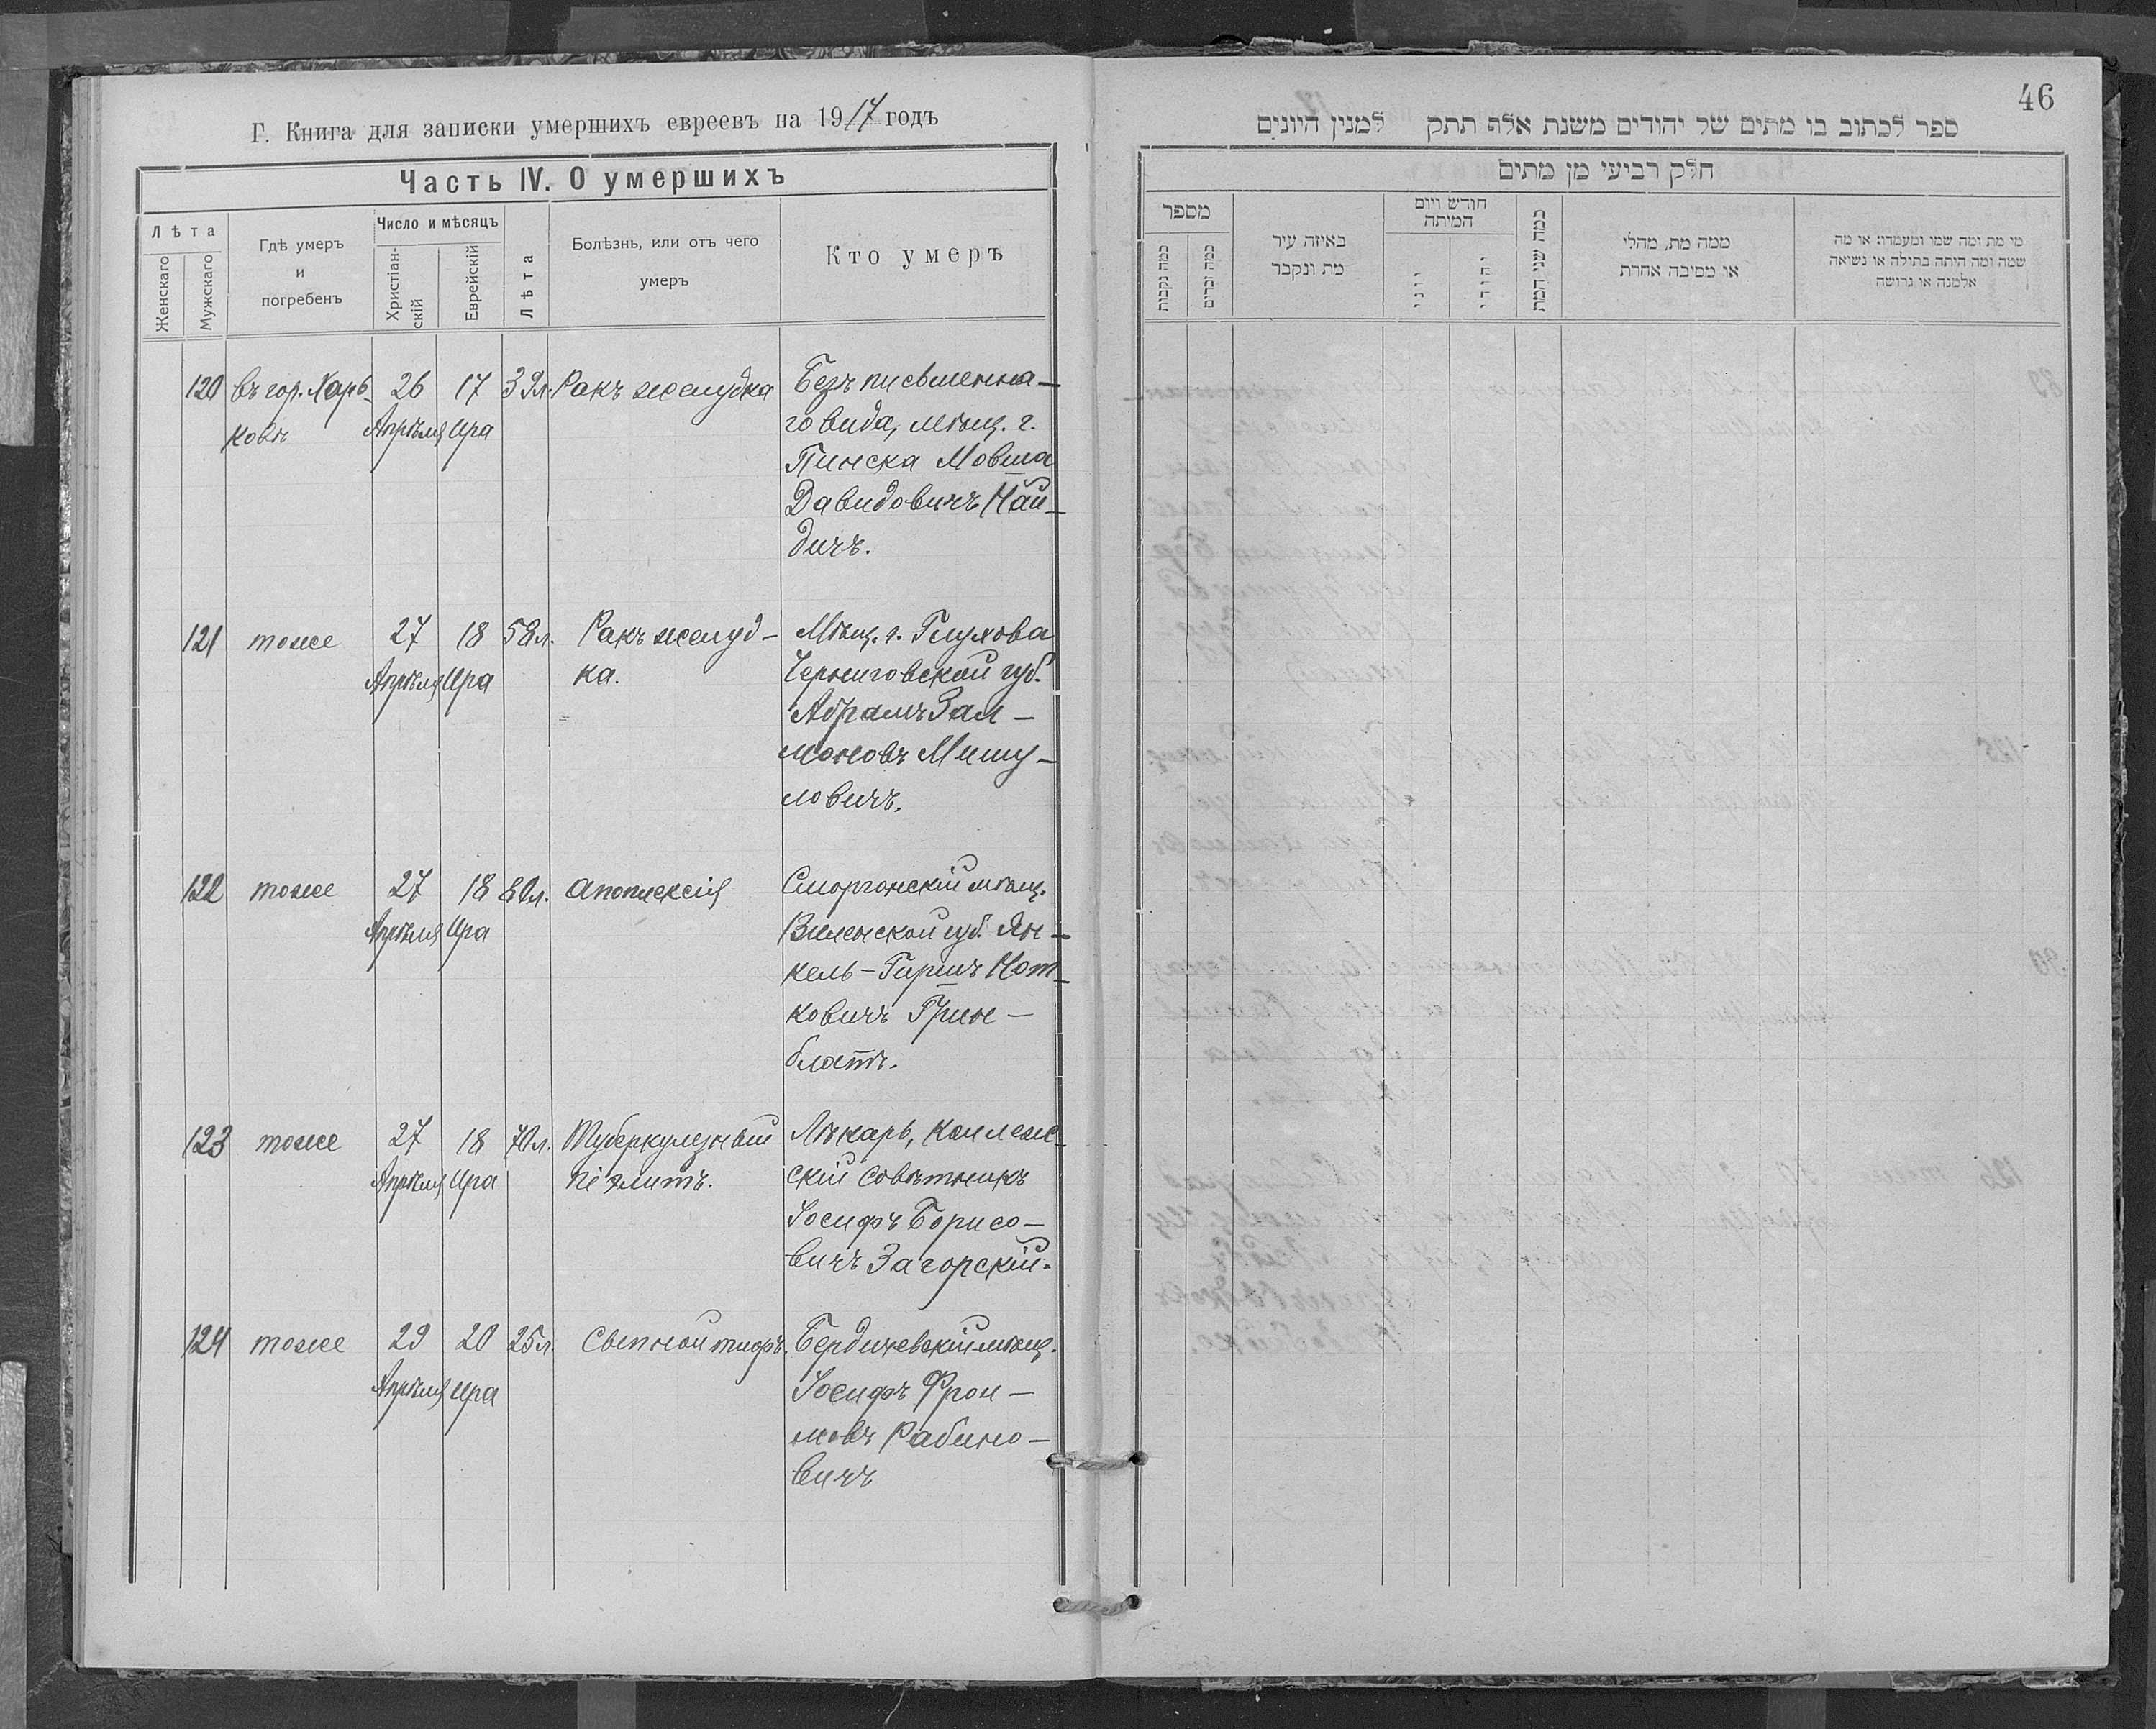 Г. Книга для записки умершихъ евреевъ на 1917 годъ
Часть IV. О умершихъ
Лѣта
Женскаго
Мужскаго
Гдѣ умеръ
и
погребенъ
Число и мѣсяцъ
Христіан-
скій
Еврейскій
Лѣта
Болѣзнь, или отъ чего
умеръ
Кто умеръ
120 въ гор. Харь- 26 17 39л. Ракъ желудка Безъ письменна-
ковѣ Апрѣля Ира го вида, мѣщ. г.
Пинска Мовша
Давидовичъ Най-
дичъ.
121 тоже 27 18 58л. Ракъ желуд- Мѣщ. г. Глухова
Апрѣля Ира ка. Черниговской губ.
Абрамъ Зал-
моновъ Мишу-
ловичъ.
122 тоже 27 18 80л. апоплексія Сморгонскій мѣщ.
Апрѣля Ира Виленской губ. Ян-
кель-Гиршъ Нот-
ковичъ Грин-
блатъ.
123 тоже 27 18 70л. Туберкулезный Лѣкарь, коллеж-
Апрѣля Ира піэлитъ. скій совѣтникъ
Іосифъ Борисо-
вичъ Загорскій.
124 тоже 29 20 25л. Сыпной тифъ. Бердичевскій мѣщ.
Апрѣля Ира Іосифъ Фрои-
мовъ Рабино-
вичъ
46
ספר לכתוב בו מתים של יהודים משנת אלף תתק למנין היונים
חלק רביעי מן מתים
מספר
כמה נקבות
כמה זכרים
באיזה עיר
מת ונקבר
חודש ויום
המיתה
יוני
יהודי
כמה שני המת
ממה מת, מחלי
או מסיבה אחרת
מי מת ומה שמו ומעמדו: או מה
שמה ומה היתה בתולה או נשואה
אלמנה או גרושה